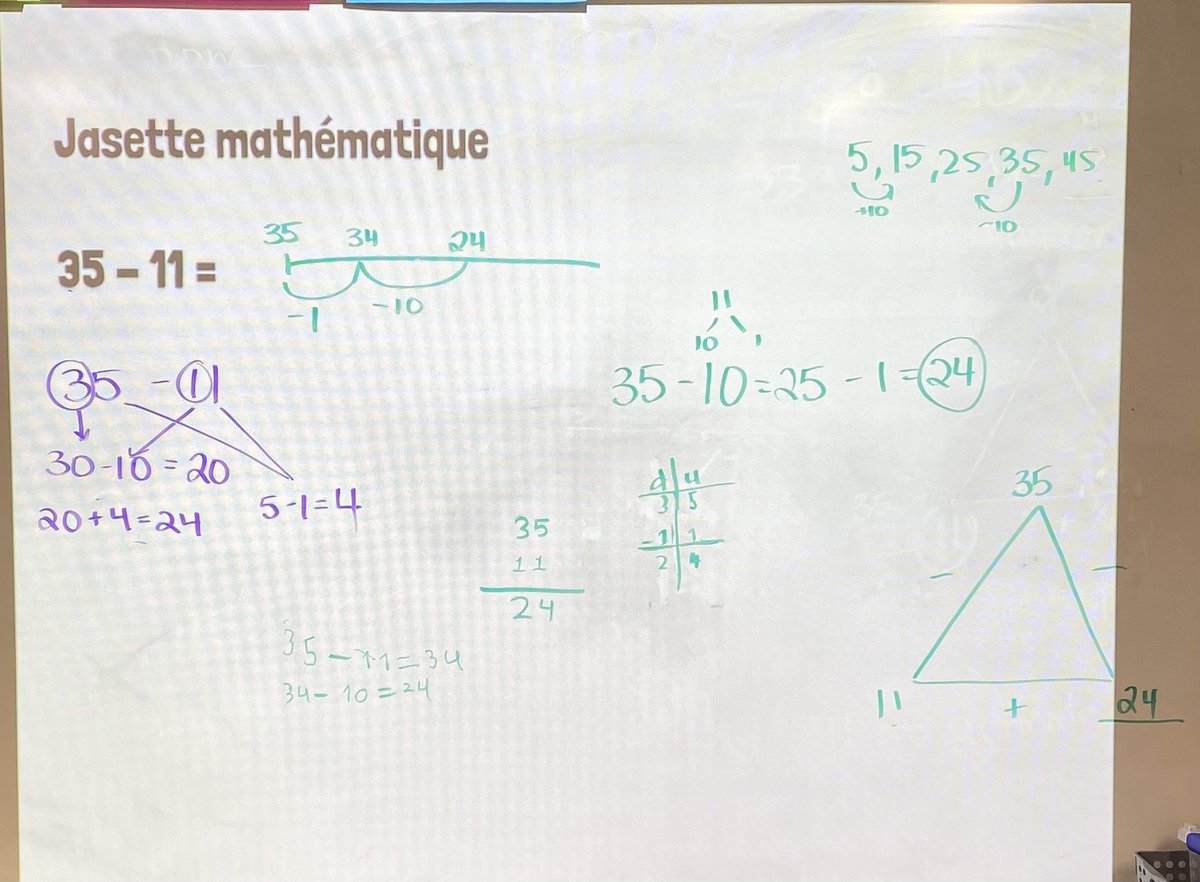 Jasette mathématique
5, 15, 25, 35, 45
+10
-10
35 - 11 =
35 34 24
-1 -10
11
10 1
35 - 10 = 25 - 1 = 24
35 - 11
30 - 10 = 20
5 - 1 = 4
20 + 4 = 24
35
11
24
d u
3 5
- 1 1
2 4
35 - 11 = 34
34 - 10 = 24
35
- -
11 + 24